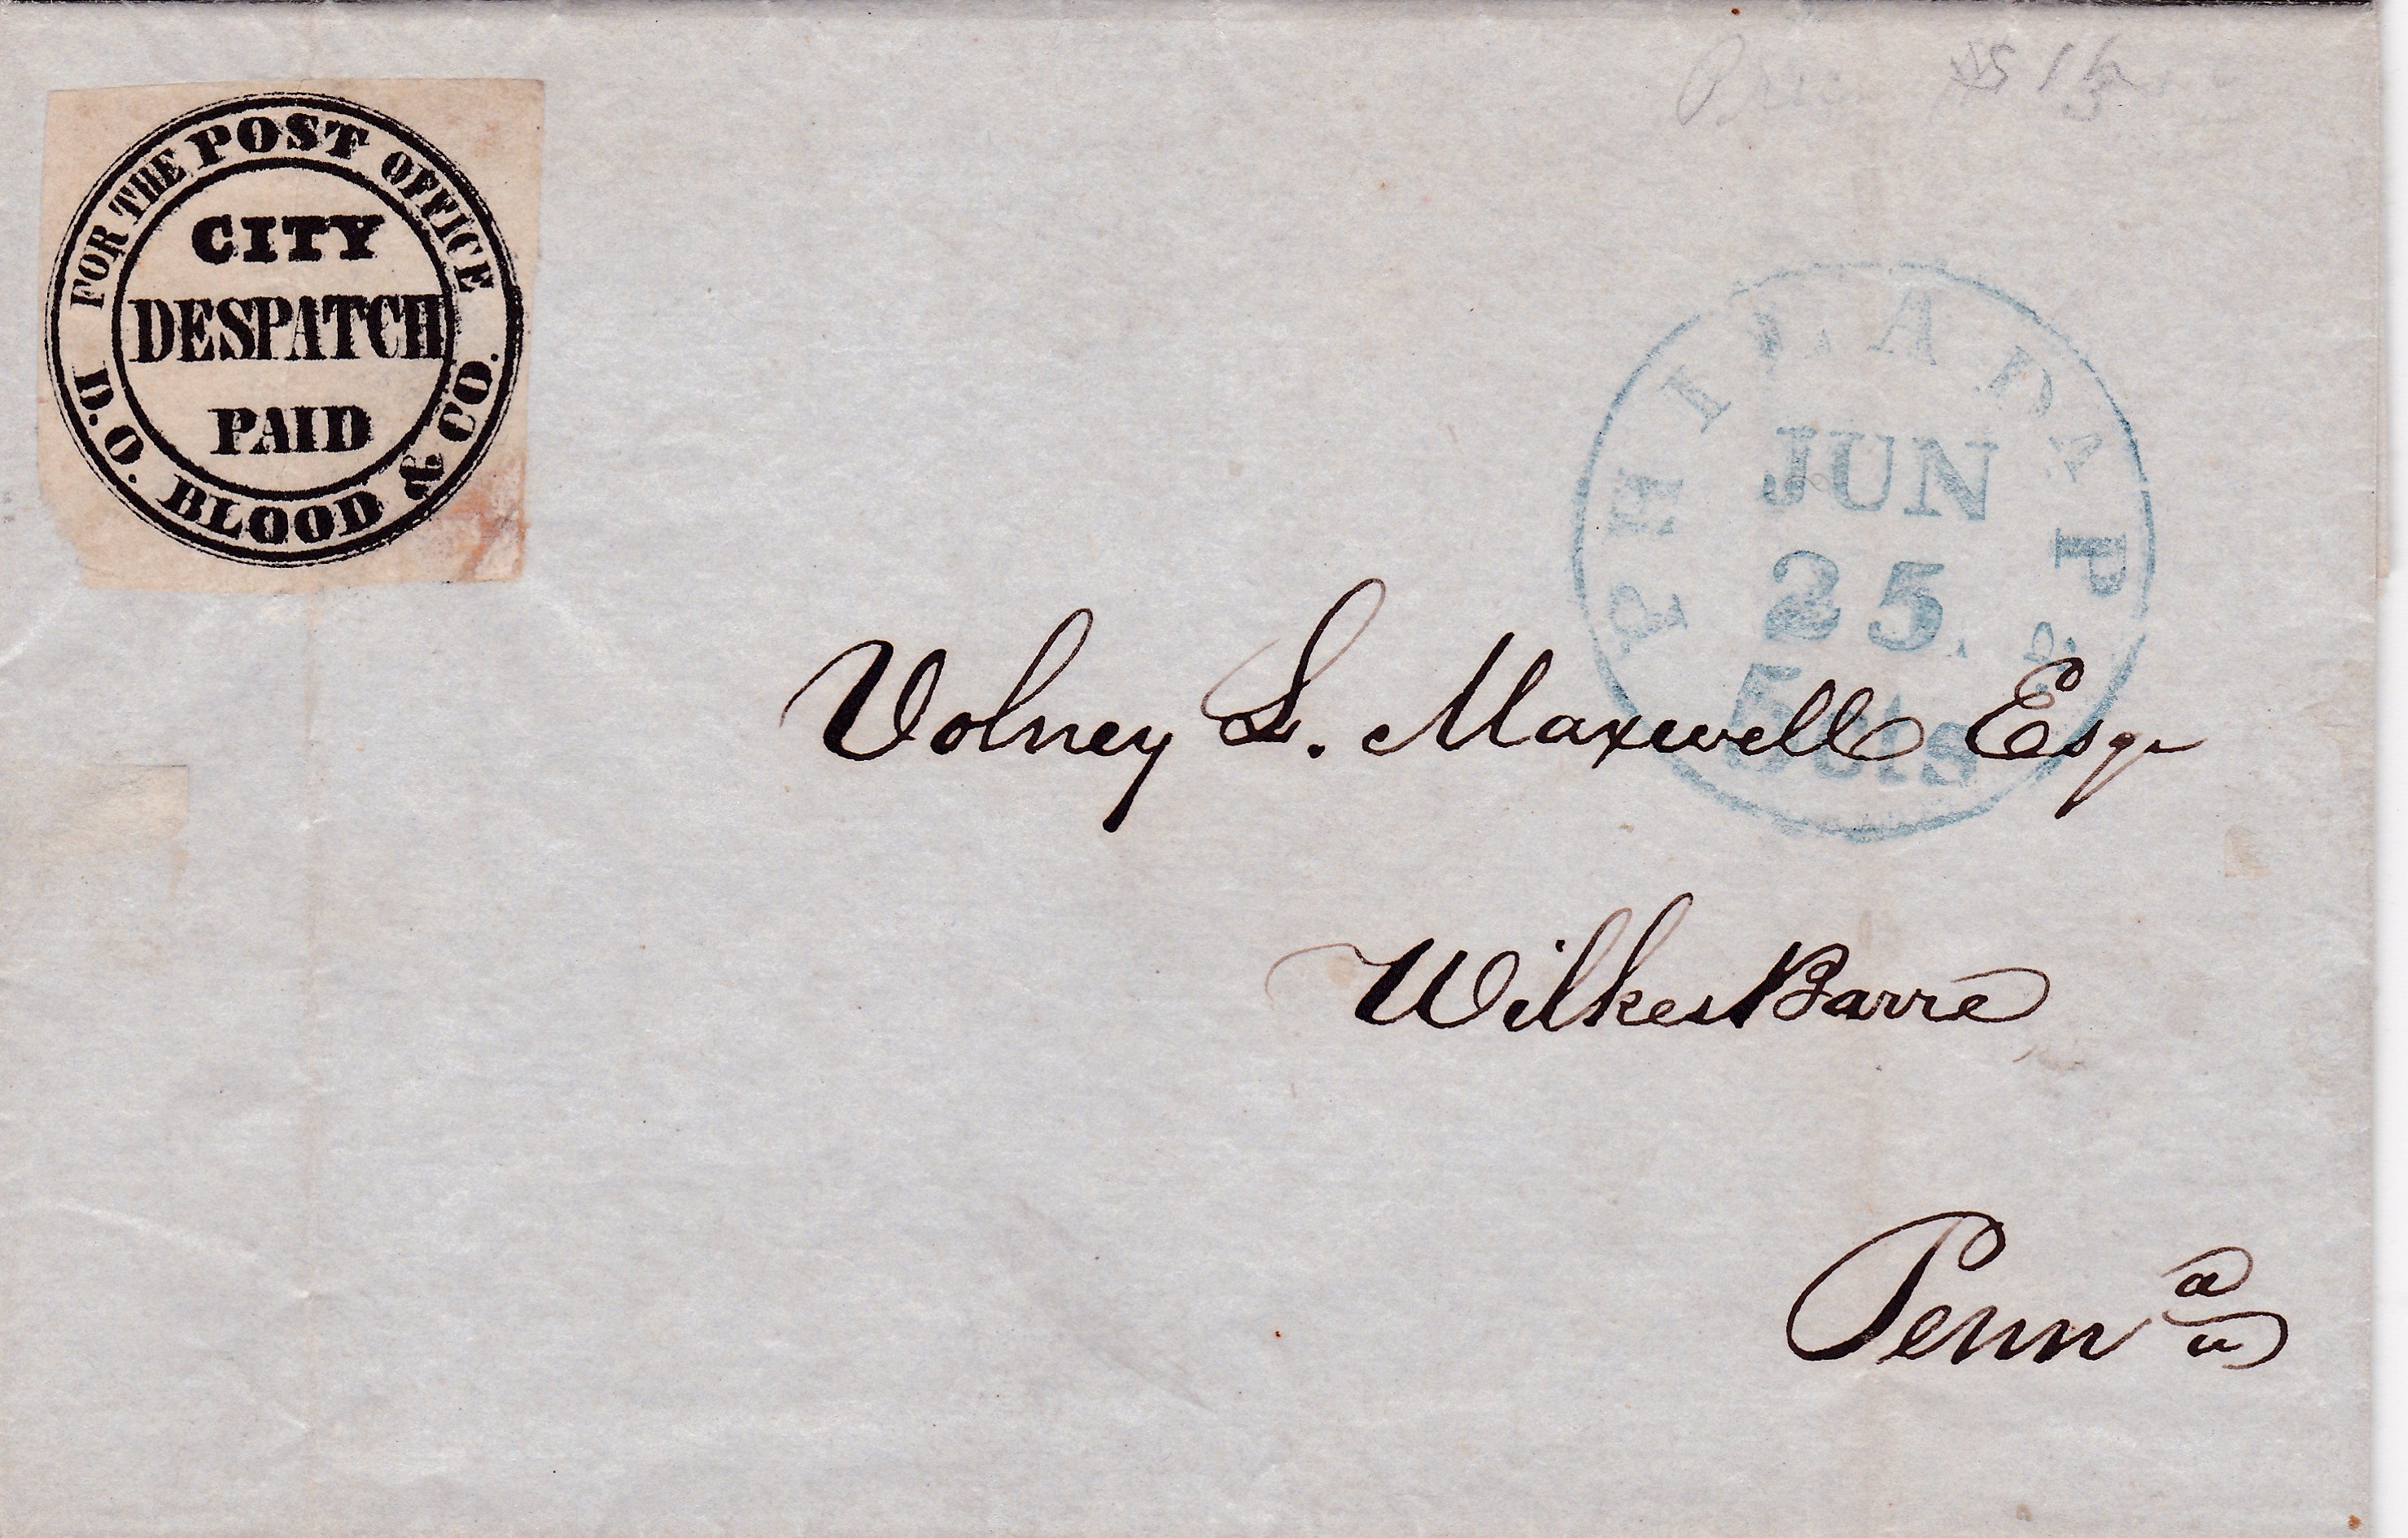 FOR THE POST OFFICE
CITY
DESPATCH
PAID
D.O. BLOOD & CO.
PHILADA Pa
JUN
25
5 cts
Volney L. Maxwell Esqr
WilkesBarre
Penna